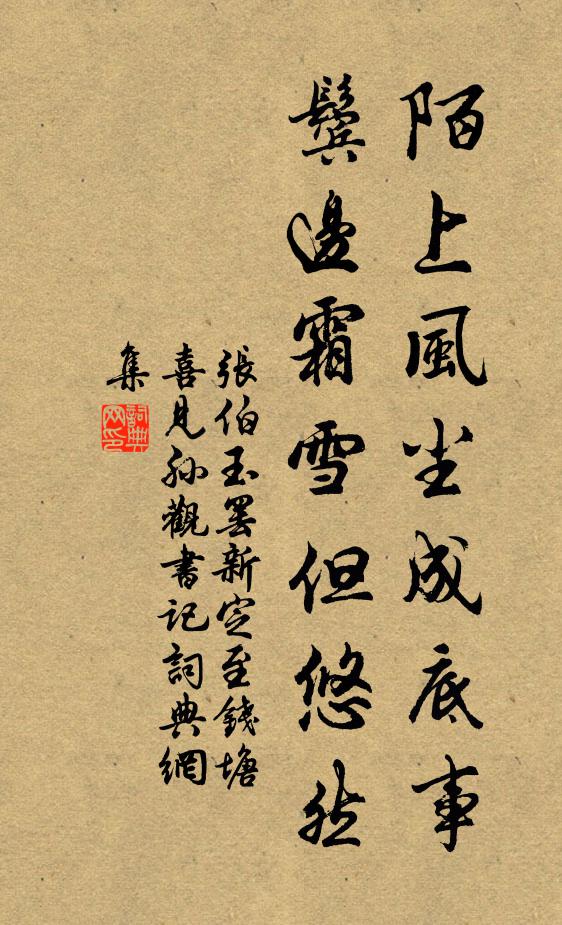 陌上風尘成底事
鬓邊霜雪但悠然
張伯玉罢新定至錢塘
喜見孙觀書记詞典網
集
詞典
网印